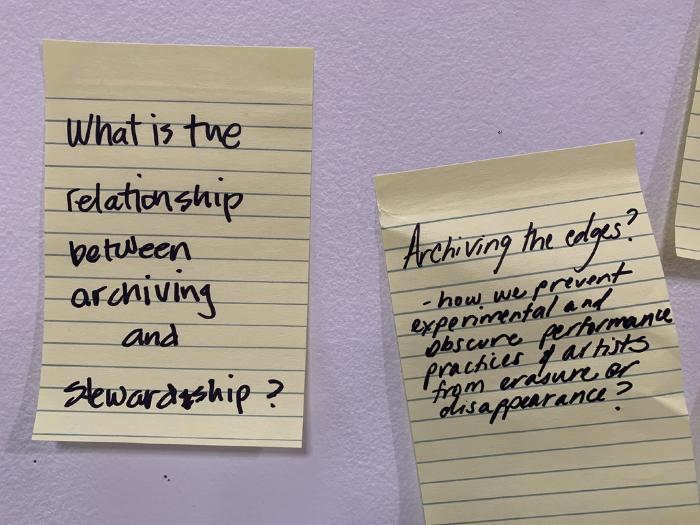 What is the
relationship
between
archiving
and
stewardship?
Archiving the edges?
- how we prevent
experimental and
obscure performance
practices & artists
from erasure or
disappearance?